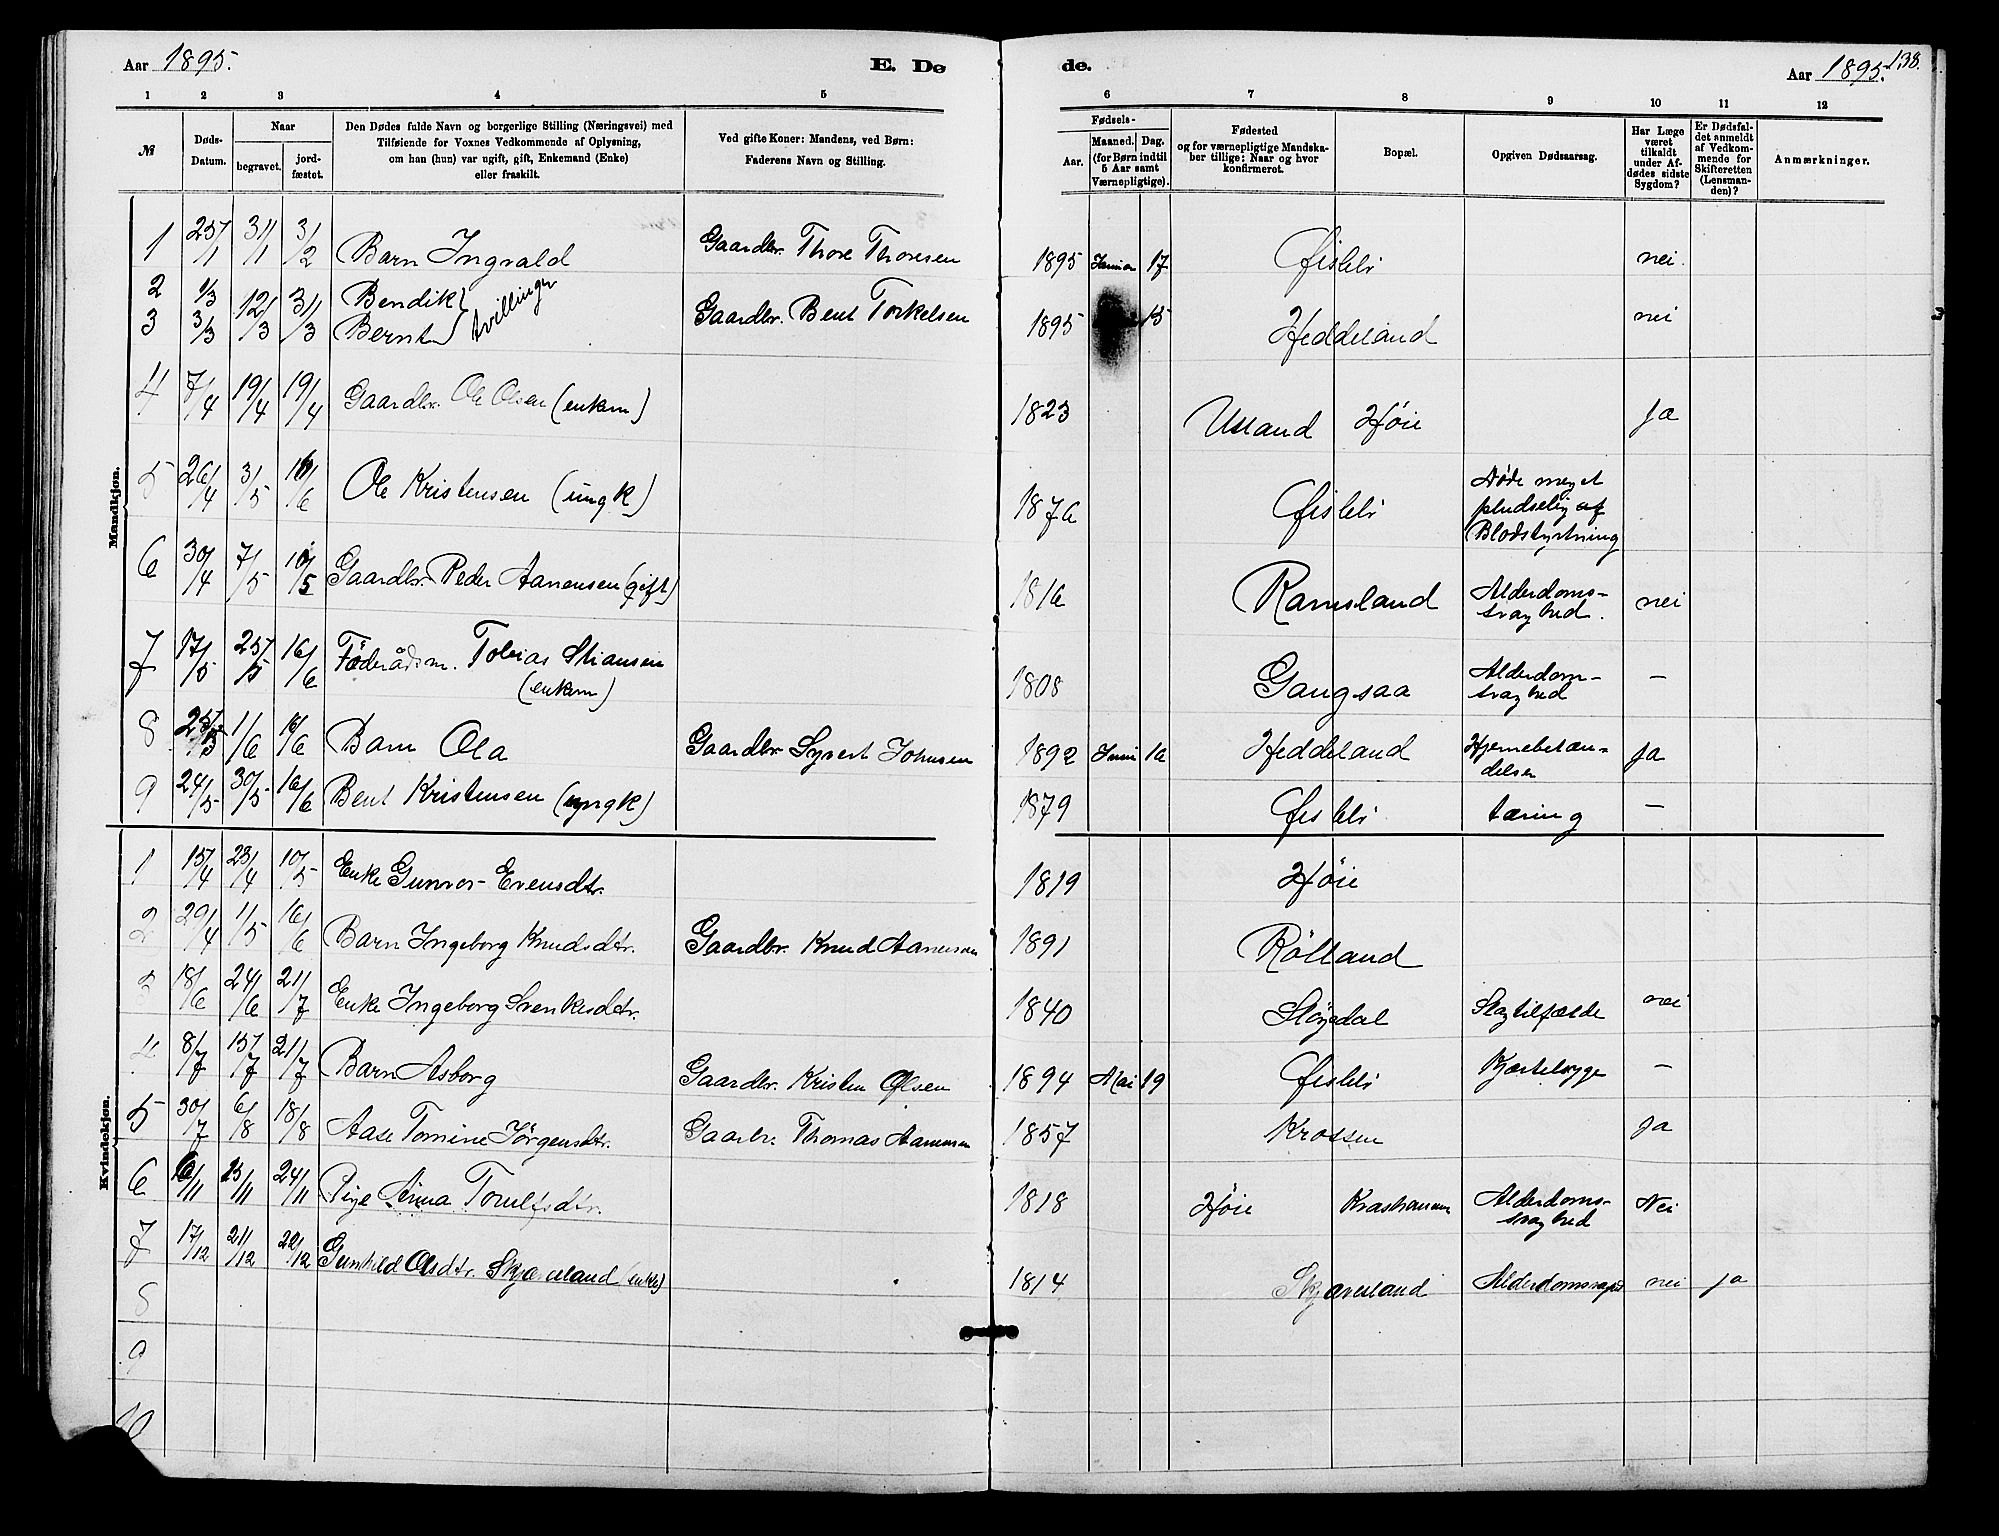 Aar 1895.
E. Dø
de.
Aar 1895.
138.
1 2 3 4 5 6 7 8 9 10 11 12
№
Døds-Datum.
Naar
begravet.
jord-fæstet.
Den Dødes fulde Navn og borgerlige Stilling (Næringsvei) med
Tilføiende for Voxnes Vedkommende af Oplysning,
om han (hun) var ugift, gift, Enkemand (Enke)
eller fraskilt.
Ved gifte Koner: Mandens, ved Børn:
Faderens Navn og Stilling.
Fødsels-
Aar.
Maaned. Dag.
(for Børn indtil
5 Aar samt
Værnepligtige).
Fødested
og for værnepligtige Mandska-
ber tillige: Naar og hvor
konfirmeret.
Bopæl.
Opgiven Dødsaarsag.
Har Læge
været
tilkaldt
under Af-
dødes sidste
Sygdom?
Er Dødsfal-
det anmeldt
af Vedkom-
mende for
Skifteretten
(Lensman-
den)?
Anmærkninger.
Mandkjøn.
1 25/1 31/1 3/2 Barn Ingvald Gaardbr. Thore Thoresen 1895 Januar 17 Øislebø nei.
2 1/3 Bendik
3 3/3 12/3 31/3 Bernt tvillinger Gaardbr. Bent Torkelsen 1895 15 Heddeland nei
4 7/4 19/4 19/4 Gaardbr. Ole Olsen (enkem) 1823 Usland Høie Ja
5 26/4 3/5 16/6 Ole Kristensen (ungk) 1876 Øislebø Døde meget
pludselig af
Blodstyrtning
6 30/4 7/5 10/5 Gaardbr. Peder Aanensen (gift) 1816 Ramsland Alderdoms-
svaghed. nei
7 17/5 25/5 16/6 Føderådsm. Tobias Stiansen
(enkem) 1808 Gangsaa Alderdom-
svaghed —
8 1/6 16/6 Barn Ola Gaardbr Syvert Johnsen 1892 Juni 16 Heddeland Hjernebetæn-
delse Ja
9 24/5 30/5 16/6 Bent Kristensen (yngk) 1879 Øislebø tæring —
Kvindekjøn.
1 15/4 23/4 10/5 Enke Gunvor Evensdtr. 1819 Høie
2 29/4 1/5 16/6 Barn Ingeborg Knudsdtr. Gaardbr. Knud Aanensen 1891 Rölland
3 18/6 24/6 21/7 Enke Ingeborg Svenkesdtr. 1840 Støyedal Slagtilfælde nei
4 8/7 15/7 21/7 Barn Asborg Gaardbr. Kristen Olsen 1894 Mai 19 Øislebø —
5 30/7 6/8 18/8 Aase Tomine Jörgensdtr. Gaarbr. Thomas Aanensen 1857 Krossen Ja
6 15/11 24/11 Pige Anna Torulfsdtr. 1818 Høie Alderdoms-
svaghed Nei
7 17/12 21/12 22/12 Gunhild Olsdtr. Skjæveland (enke) 1814 Skjæveland nei ja
8
9
10